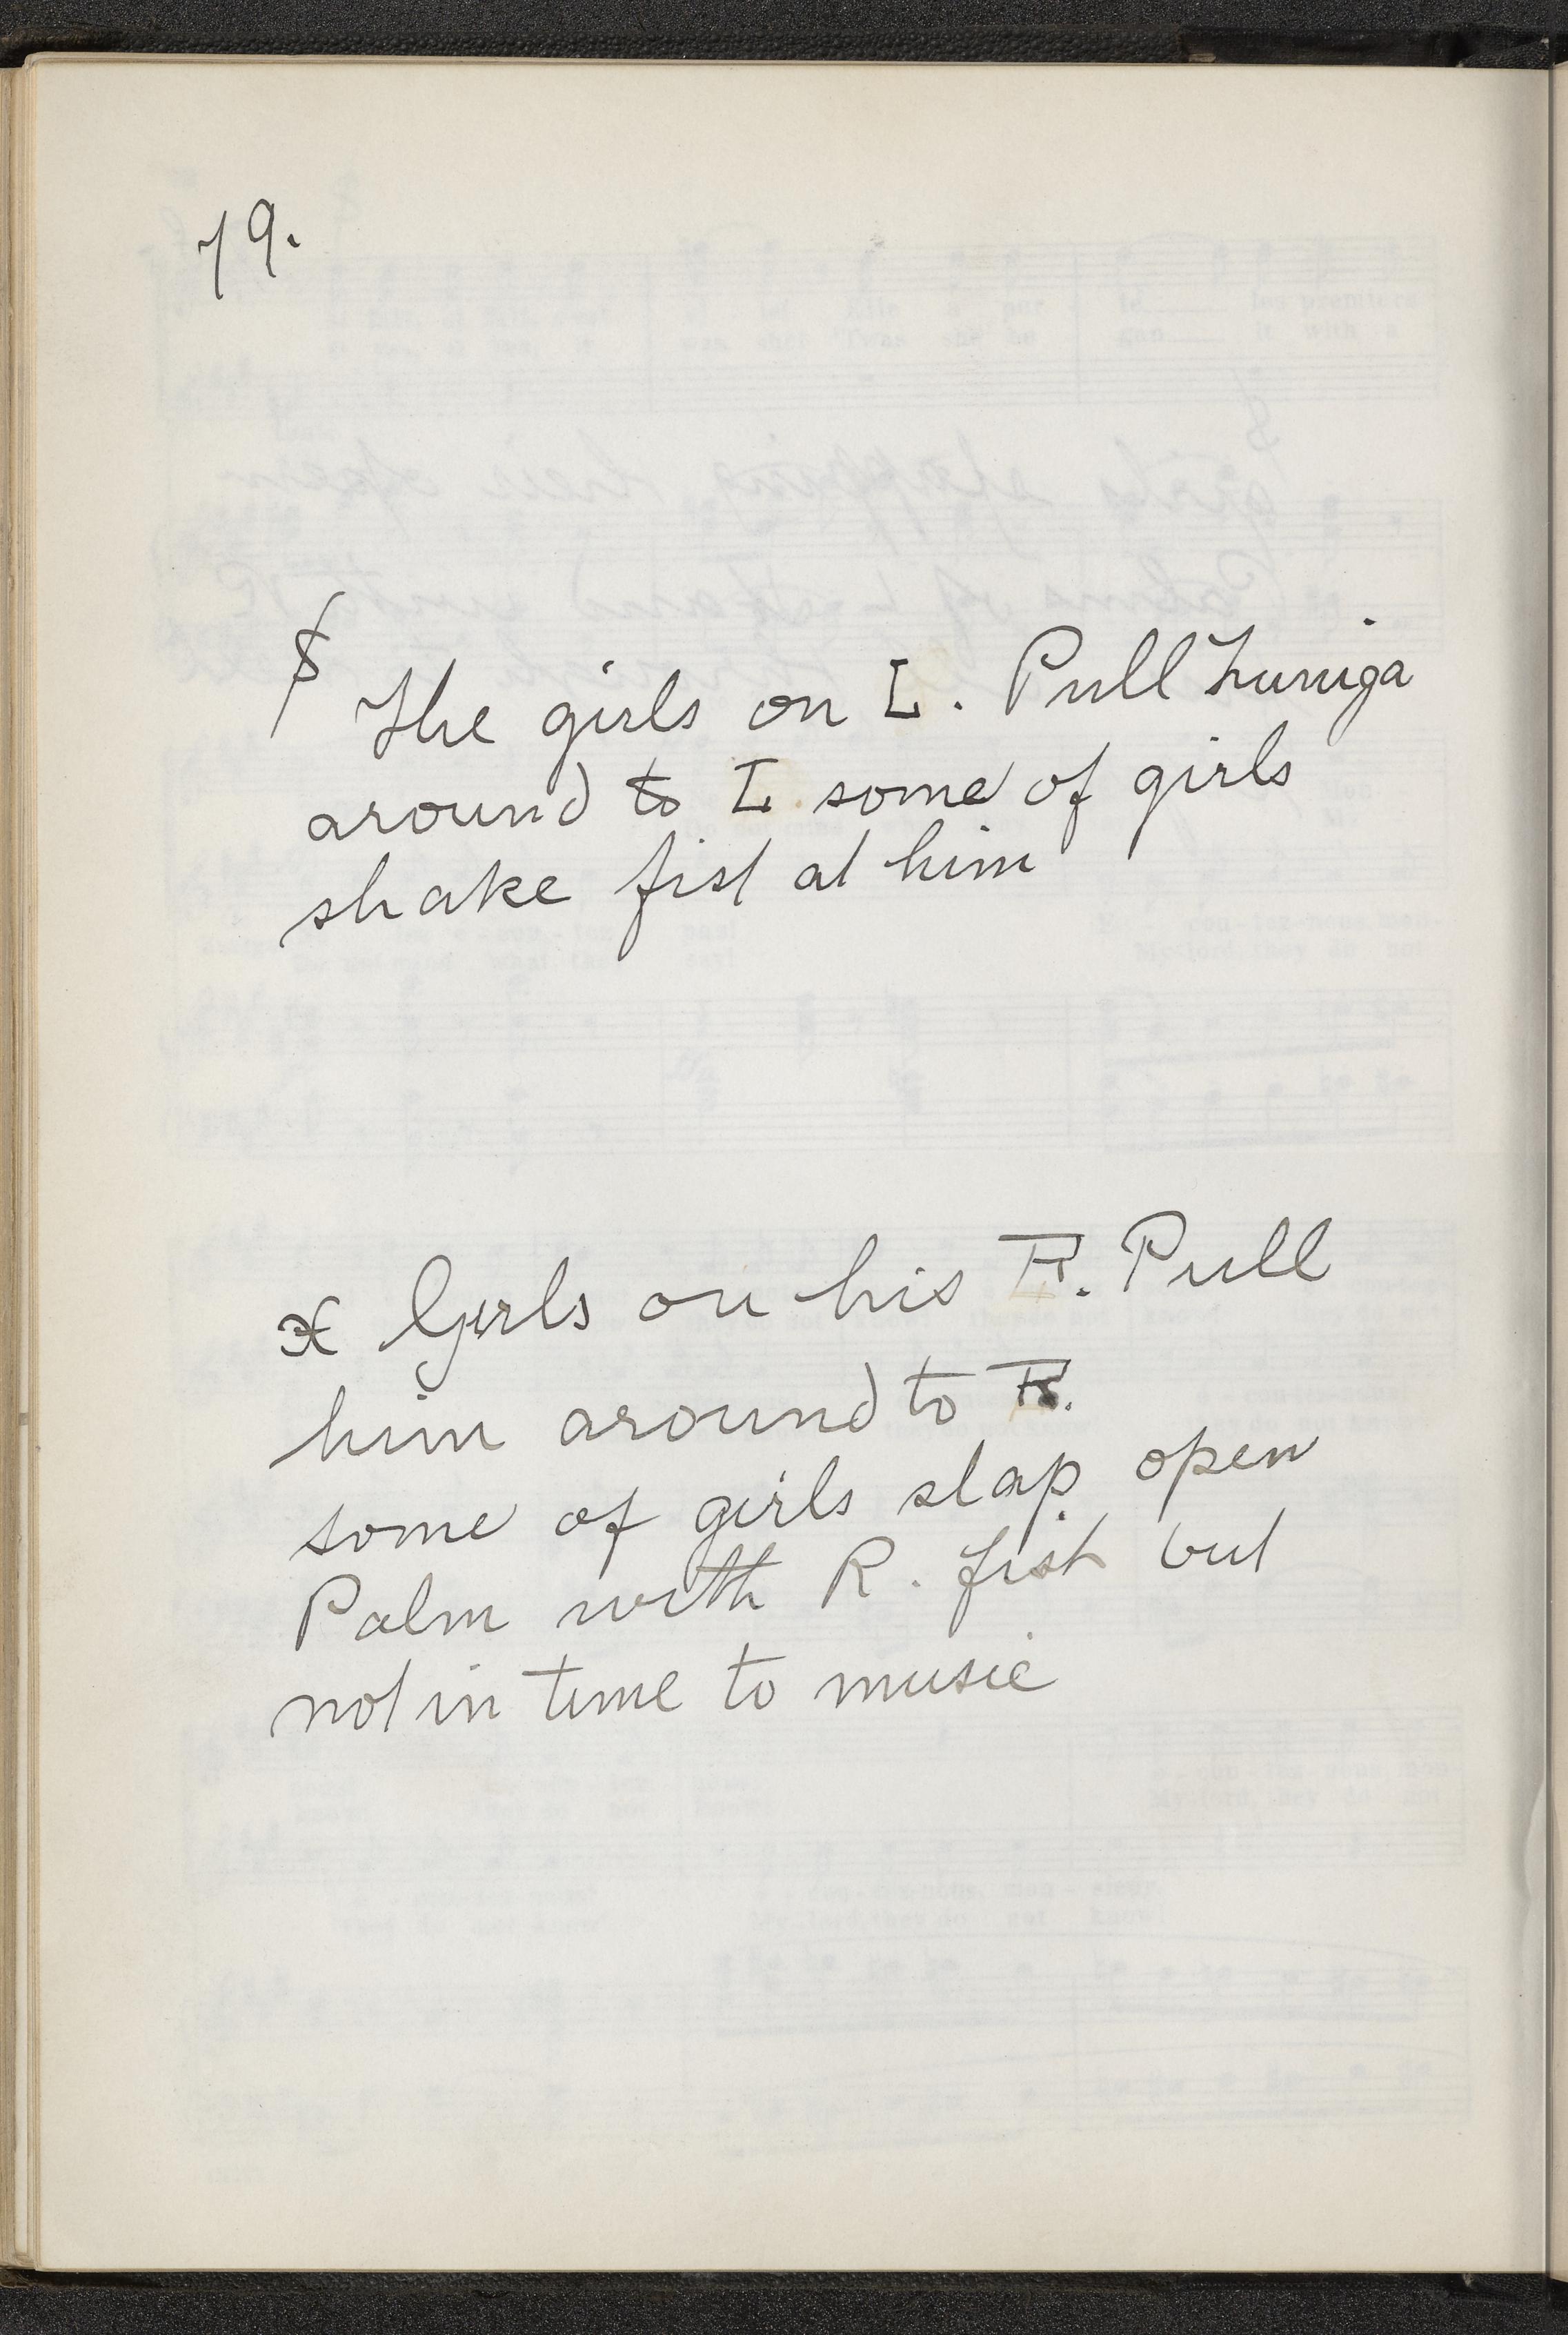 79.
$ The girls on L. Pull Zuniga
around to L. some of girls
shake fist at him
x Girls on his R. Pull
him around to R.
some of girls slap open
Palm with R. fist but
not in time to music